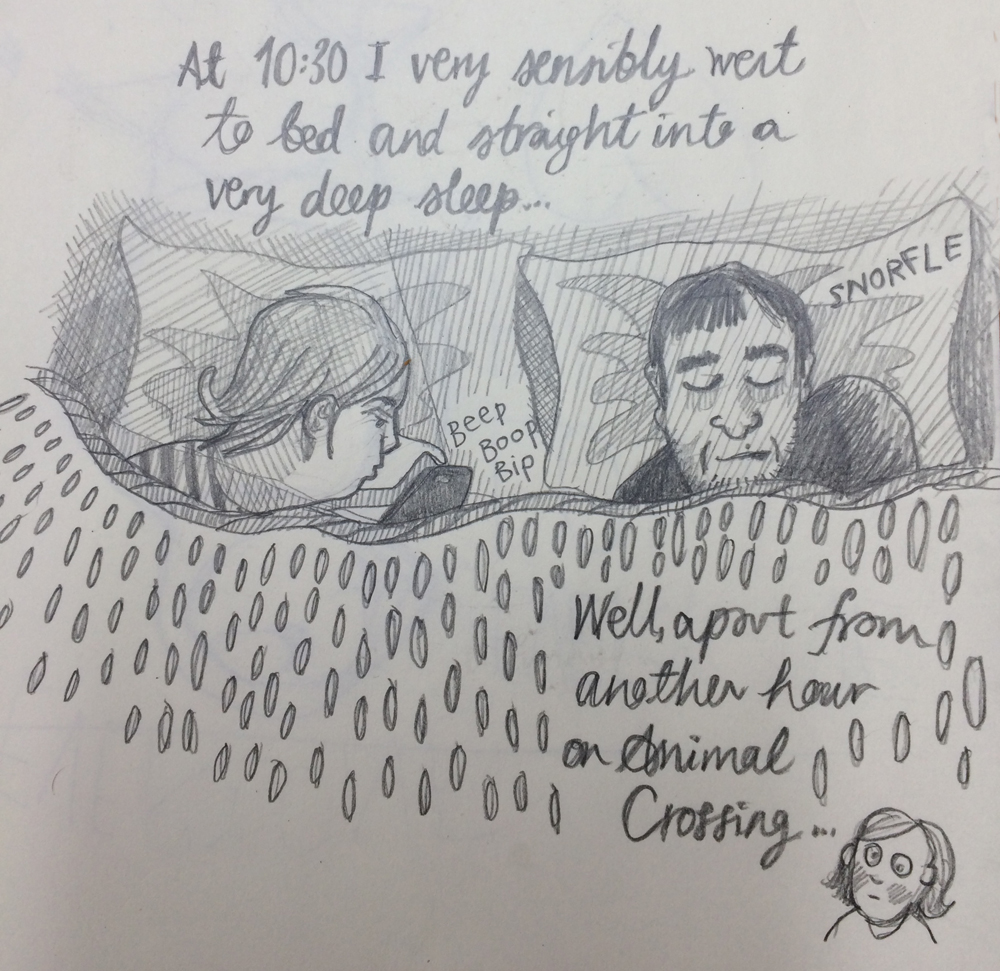 At 10:30 I very sensibly went
to bed and straight into a
very deep sleep...
SNORFLE
Beep
Boop
Bip
Well, apart from
another hour
on Animal
Crossing...